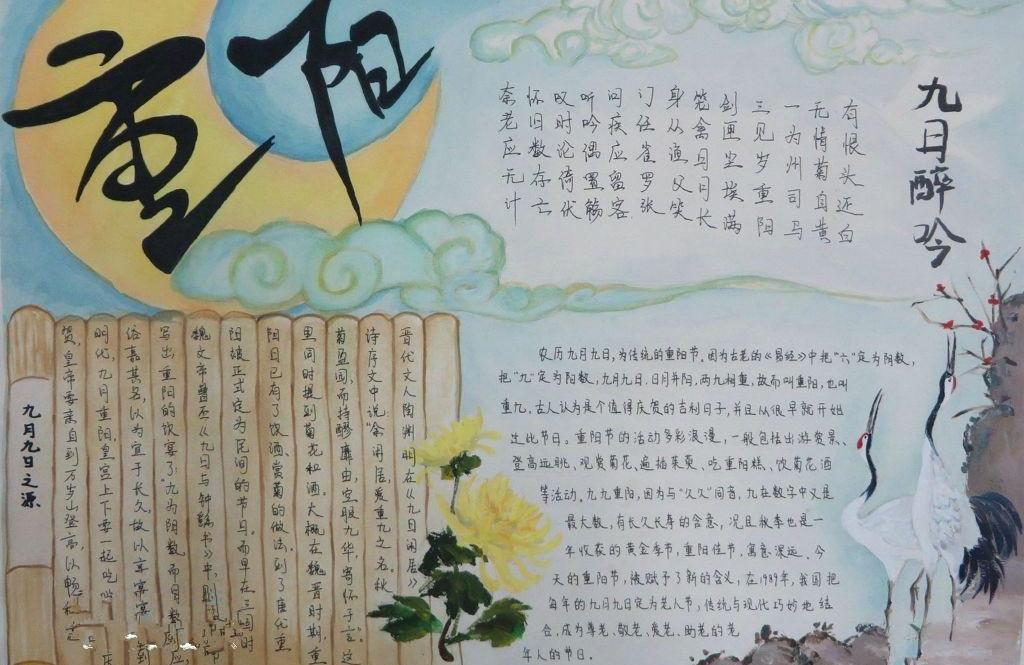 重阳
九日醉吟
有恨头还白
无情菊自黄
一为州司马
三见岁重阳
剑匣尘埃满
笼禽日月长
身从渔父笑
门任雀罗张
问疾应留客
听吟偶置觞
叹时论倚伏
怀旧数存亡
奈老应无计
晋代文人陶渊明在《九日闲居》
诗序文中说:“余闲居,爱重九之名。秋
菊盈园,而持醪靡由,空服九华,寄怀于言”。这
里同时提到菊花和酒。大概在魏晋时期,重
阳日已有了饮酒、赏菊的做法。到了唐代重
阳被正式定为民间的节日。而早在三国时
魏文帝曹丕《九日与钟繇书》中,则
写出重阳的饮宴了:“九为阳数,而月数并应,
俗嘉其名,以为宜于长久,故以享宴
明代,九月重阳,皇宫上下要一起吃 庆
贺,皇帝要亲自到万岁山登高,以畅秋志
九月九日之源
农历九月九日,为传统的重阳节。因为古老的《易经》中把“六”定为阴数,
把“九”定为阳数,九月九日,日月并阳,两九相重,故而叫重阳,也叫
重九,古人认为是个值得庆贺的吉利日子,并且从很早就开始
过此节日。重阳节的活动多彩浪漫,一般包括出游赏景、
登高远眺、观赏菊花、遍插茱萸、吃重阳糕、饮菊花酒
等活动。九九重阳,因为与“久久”同音,九在数字中又是
最大数,有长久长寿的含意,况且秋季也是一
年收获的黄金季节,重阳佳节,寓意深远。今
天的重阳节,被赋予了新的含义,在1989年,我国把
每年的九月九日定为老人节,传统与现代巧妙地结
合,成为尊老、敬老、爱老、助老的老
年人的节日。